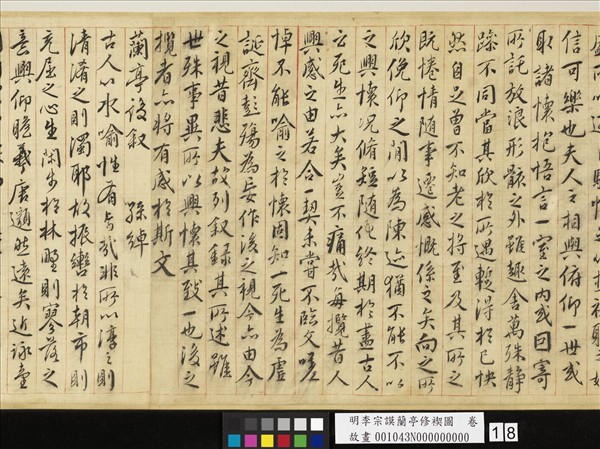 信可樂也夫人之相與俯仰一世或
取諸懷抱悟言一室之內或因寄
所託放浪形骸之外雖趣舍萬殊靜
躁不同當其欣於所遇暫得於己快
然自足曾不知老之將至及其所之
既惓情隨事遷感慨係之矣向之所
欣俛仰之間以為陳迹猶不能不以
之興懷況脩短隨化終期於盡古人
云死生亦大矣豈不痛哉每攬昔人
興感之由若合一契未嘗不臨文嗟
悼不能喻之於懷固知一死生為虛
誕齊彭殤為妄作後之視今亦由今
之視昔悲夫故列叙錄其所述雖
世殊事異所以興懷其致一也後之
攬者亦將有感於斯文
蘭亭後叙 孫綽
古人以水喻性有旨哉非所以渟之則
清淆之則濁耶故振轡於朝市則
充屈之心生閑步於林野則寥落之
意興仰瞻羲唐邈然遠矣近詠臺
明李宗謨蘭亭修禊圖 卷
故畫 001043N000000000
18